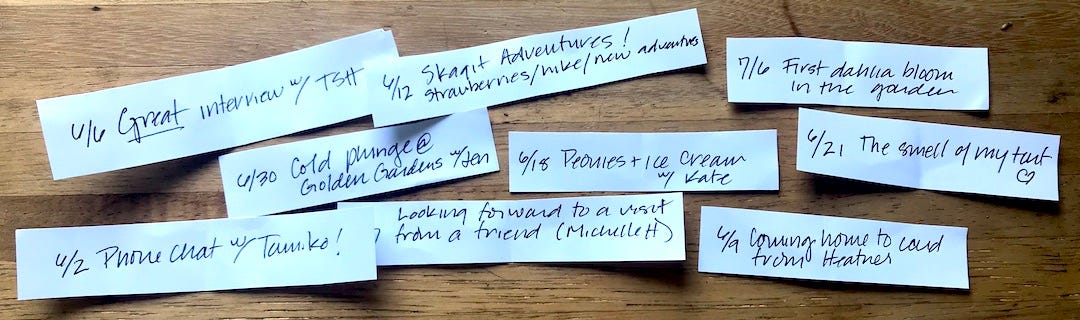 6/6 Great interview w/ TSH
6/12 Skagit Adventures!
strawberries/hike/new adventures
7/6 First dahlia bloom
in the garden
6/30 Cold plunge@
Golden Gardens w/Jen
6/18 Peonies + Ice Cream
w/ Kate
6/21 The smell of my
♡
6/2 Phone Chat w/ Tamiko!
Looking forward to a visit
from a friend (Michelle H)
6/9 Coming home to card
from Heather